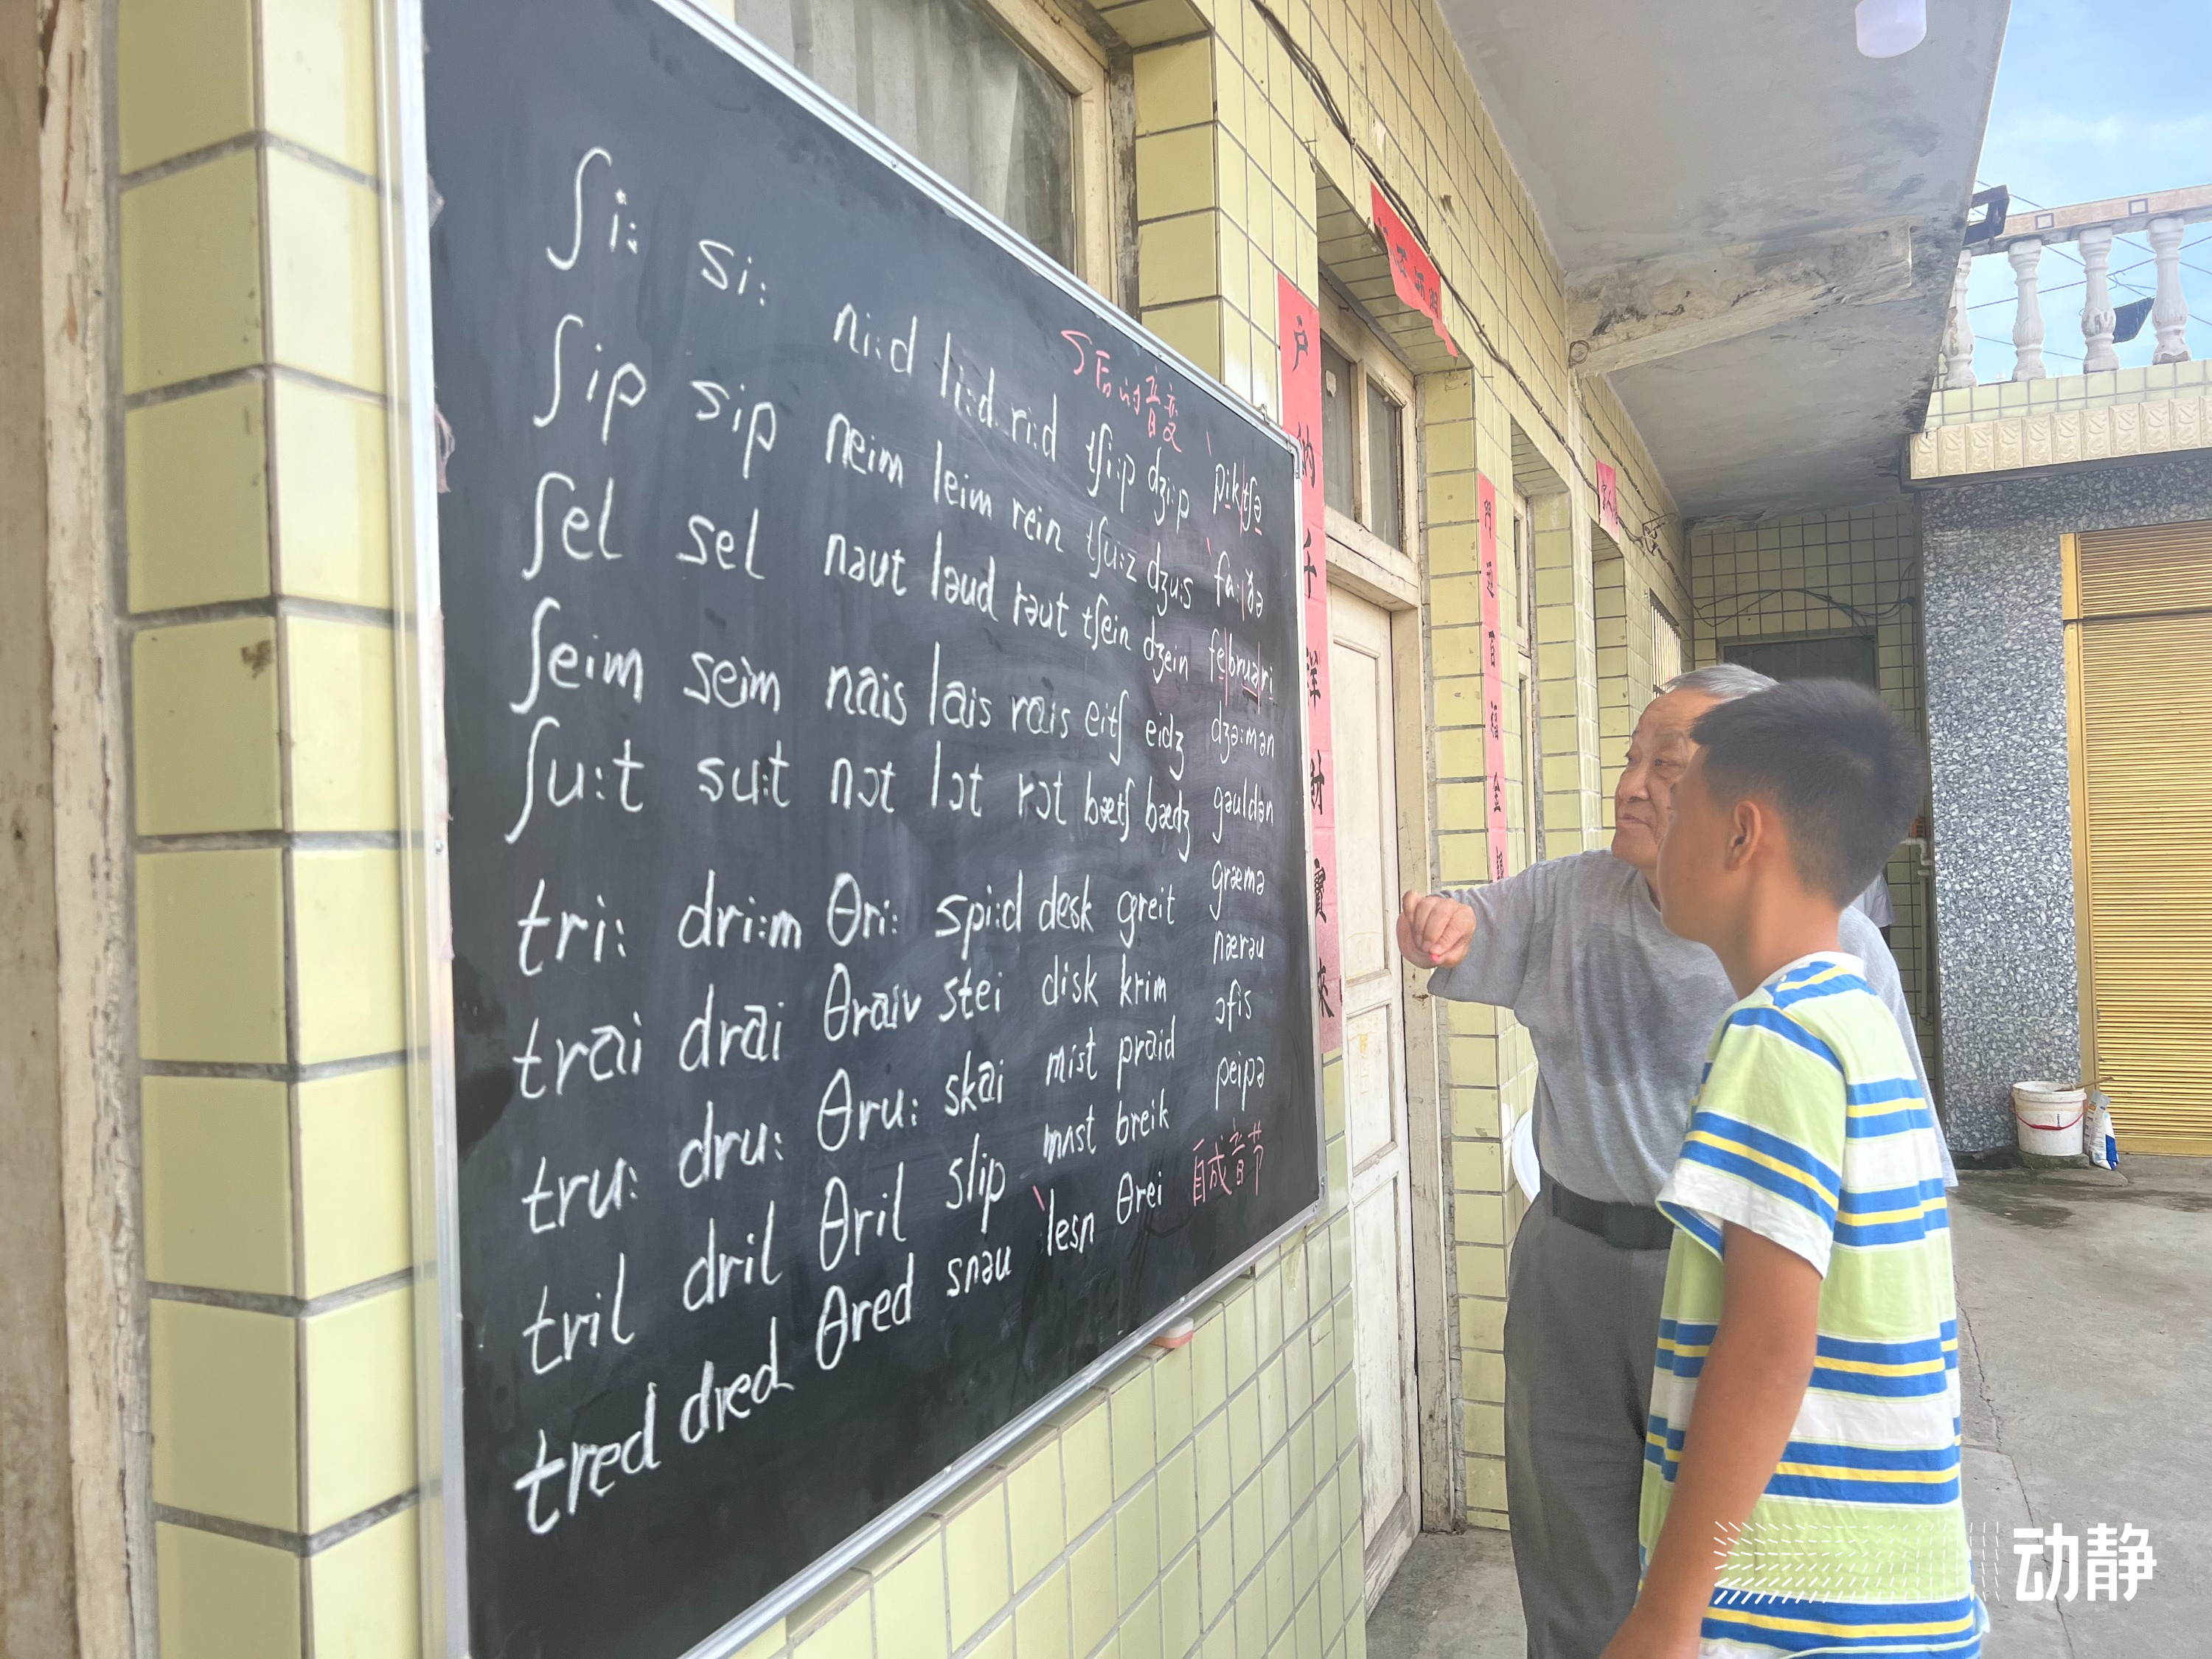 ʃi: si: ni:d li:d ri:d tʃi:p dʒi:p ˋpiktʃə
s后的音变
ʃip sip neim leim rein tʃu:z dʒu:s ˋfa:ðə
ʃel sel nəut ləud rəut tʃein dʒein februəri
ʃeim seim nais lais rais eitʃ eidʒ dʒə:mən
ʃu:t su:t nɔt lɔt rɔt bætʃ bædʒ gəuldən
tri: dri:m θri: spi:d desk greit græmə
nærəu
trai drai θraiv stei disk krim ɔfis
tru: dru: θru: skai mist praid peipə
tril dril θril slip mʌst breik
tred dred θred snəu ˋlesn θrei 自成音节
户纳千祥财宝来
動静